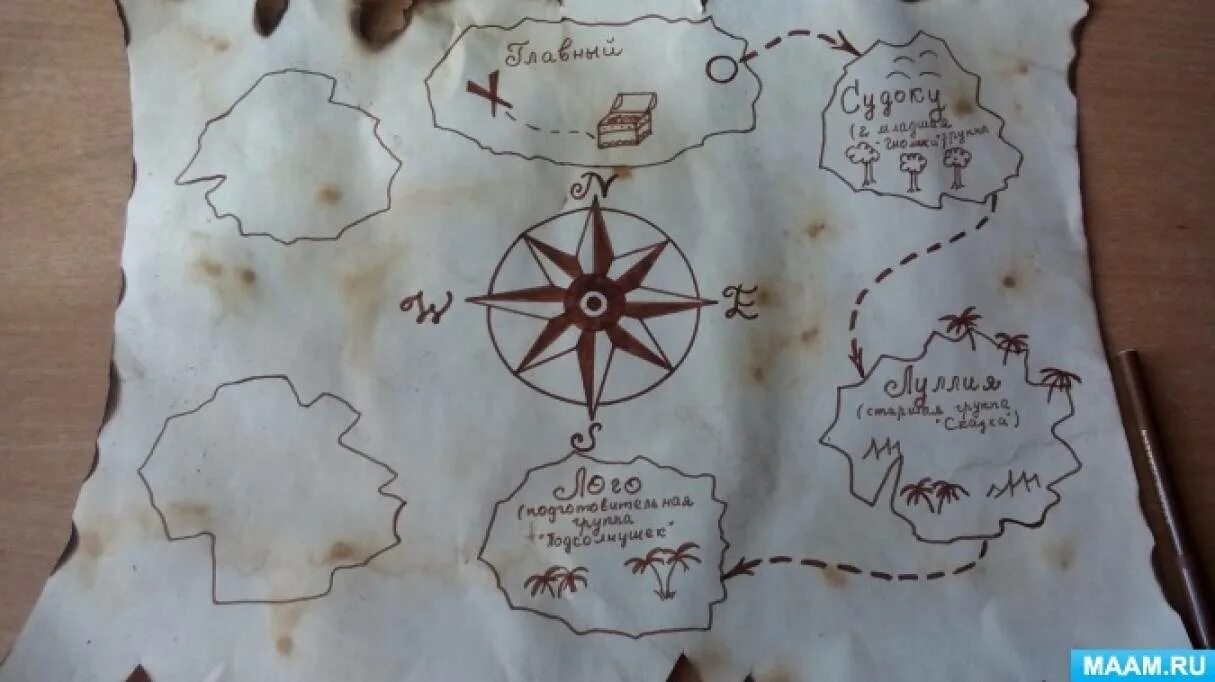 Главный
Судоку
(2 младшая
"Гномики" группа
N
W
E
S
Луллия
(старшая группа
"Сказка")
Лого
(подготовительная
группа
"Подсолнушек"
MAAM.RU